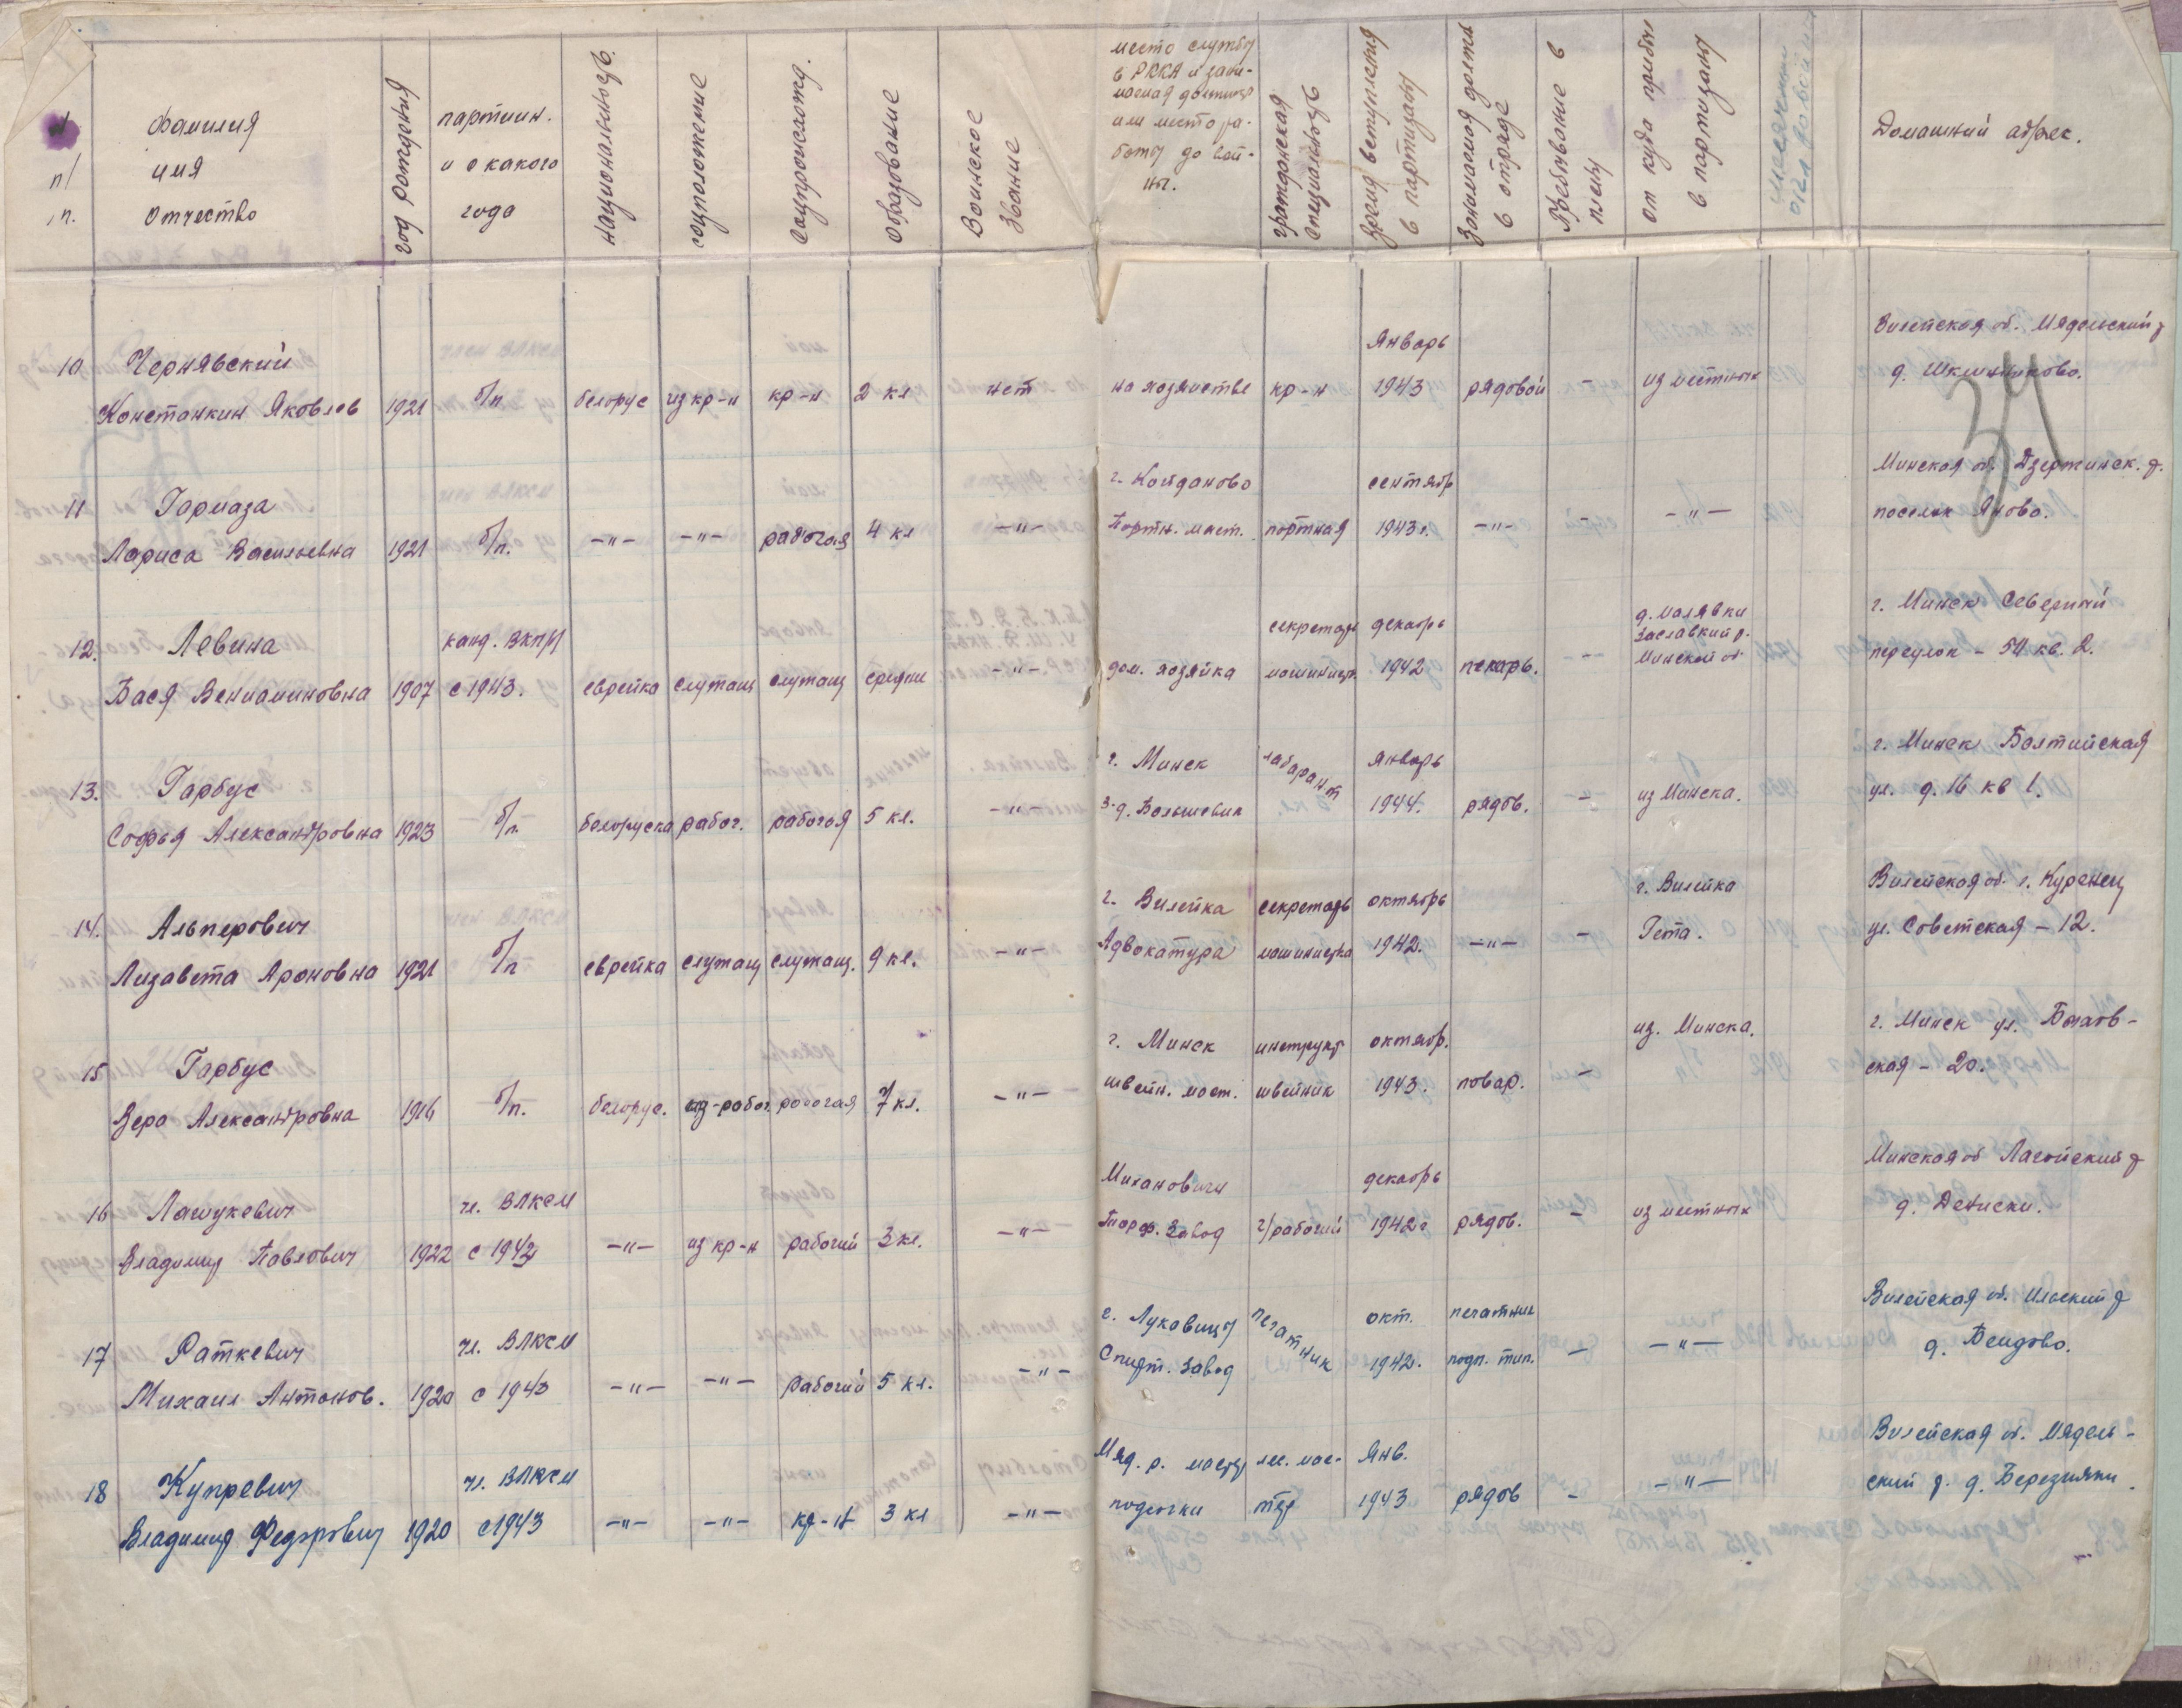 п/п. Фамилия имя отчество | год рождения | партийн. и с какого года | национальность. | соцположение | соцпроисхожд. | Образование | Воинское звание | место службы в РККА и зани- маемая должность или место ра- боты до вой- ны. | гражданская специальность | Время вступления в партизаны | Занимаемая должн. в отряде | Пребывание в плену | От куда прибыл в партизаны | Домашний адрес.
34
10 Чернявский | Январь | Вилейская об. Мядельский р
Констанкин Яковлев | 1921 | б/п. | белорус | из кр-н | кр-н | 2 кл | нет | на хозяйстве | кр-н | 1943 | рядовой | - | из местных | д.
11 Гармаза | г. Койданово | сентябр | Минская об. Дзержинск. р.
Лариса Васильевна | 1921 | б/п. | -"- | -"- | рабочая | 4 кл | -"- | Портн. маст. | портная | 1943 г. | -"- | - | -"- | поселок Яново.
12. Левина | канд. ВКП/б | секретарь | декабрь | д. Малявки Заславский р. | г. Минск Северный
Бася Вениаминовна | 1907 | с 1943. | еврейка | служащ | служащ | средне | -"- | дом. хозяйка | машинист. | 1942 | пекарь. | - | Минской об | переулок - 54 кв. 2.
13. Гарбус | г. Минск | лабарант | январь | г. Минск Балтийская
Софья Александровна | 1923 | б/п. | белоруска | рабоч. | рабочая | 5 кл. | -"- | з-д. Большевик | 1944. | рядов. | - | из Минска. | ул. д. 16 кв 1.
14. Альперович | г. Вилейка | секретарь | октябрь | г. Вилейка | Вилейская об. г. Куренец
Лизавета Ароновна | 1921 | б/п | еврейка | служащ | служащ. | 9 кл. | -"- | Адвокатура | машинистка | 1942. | -"- | - | Гета. | ул. Советская - 12.
15 Гарбус | г. Минск | инструкт | октябр. | из. Минска. | г. Минск ул.
Вера Александровна | 1916 | б/п. | белорус. | из-рабоч. | рабочая | 7 кл. | -"- | швейн. маст. | швейник | 1943. | повар. | - | ская - 20.
16 Лашукевич | чл. ВЛКСМ | Михановичи | декабрь | Минская об Лагойский р
Владимир Павлович | 1922 | с 1942 | -"- | из кр-н | рабочий | 3 кл. | -"- | Торф. завод | ч/рабочий | 1942 г | рядов. | - | из местных | д. Дениски.
17 Раткевич | чл. ВЛКСМ | с. Луковицу | печатник | окт. | печатник | Вилейская об. Ильский р
Михаил Антонов. | 1920 | с 1943 | -"- | -"- | рабочий | 5 кл. | -"- | Спирт. завод | 1942. | подп. тип. | - | -"- | д.
18 Купревич | чл. ВЛКСМ | Мяд. р. | лес. мас- | Янв. | Вилейская об. Мядель-
Владимир Федорович | 1920 | с 1943 | -"- | -"- | кр-н | 3 кл | -"- | подсочки | тер | 1943 | рядов | - | -"- | ский р. д. Березняки.